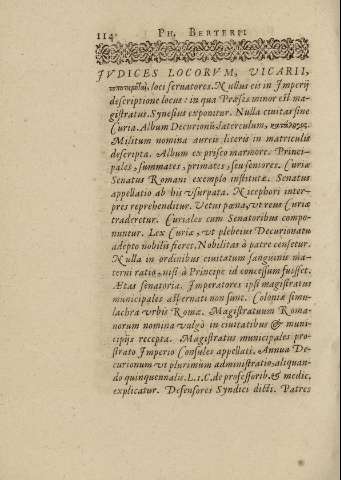 114 PH. BERTERII
IVDICES LOCORVM, VICARII,
τοποτηρηταὶ, loci seruatores. Nullus eis in Imperij
descriptione locus: in qua Præses minor est ma-
gistratus. Synesius exponitur. Nulla ciuitas sine
Curia. Album Decurionũ laterculum, κατάλογος.
Militum nomina aureis literis in matriculis
descripta. Album ex prisco marmore. Princi-
pales, summates, primates, seu seniores. Curiæ
Senatus Romani exemplo institutæ. Senatus
appellatio ab his vsurpata. Nicephori inter-
pres reprehenditur. Vetus pœna, vt reus Curiæ
traderetur. Curiales cum Senatoribus compo-
nuntur. Lex Curiæ, vt plebeius Decurionatu
adepto nobilis fieret. Nobilitas à patre censetur.
Nulla in ordinibus ciuitatum sanguinis ma-
terni ratio, nisi à Principe id concessum fuisset.
Ætas senatoria. Imperatores ipsi magistratus
municipales aspernati non sunt. Coloniæ simu-
lachra vrbis Romæ. Magistratuum Roma-
norum nomina vulgò in ciuitatibus & muni-
cipijs recepta. Magistratus municipales pro-
strato Imperio Consules appellati. Annua De-
curionum vt plurimum administratio, aliquan-
do quinquennalis. L.1.C. de professorib. & medic.
explicatur. Defensores Syndici dicti. Patres